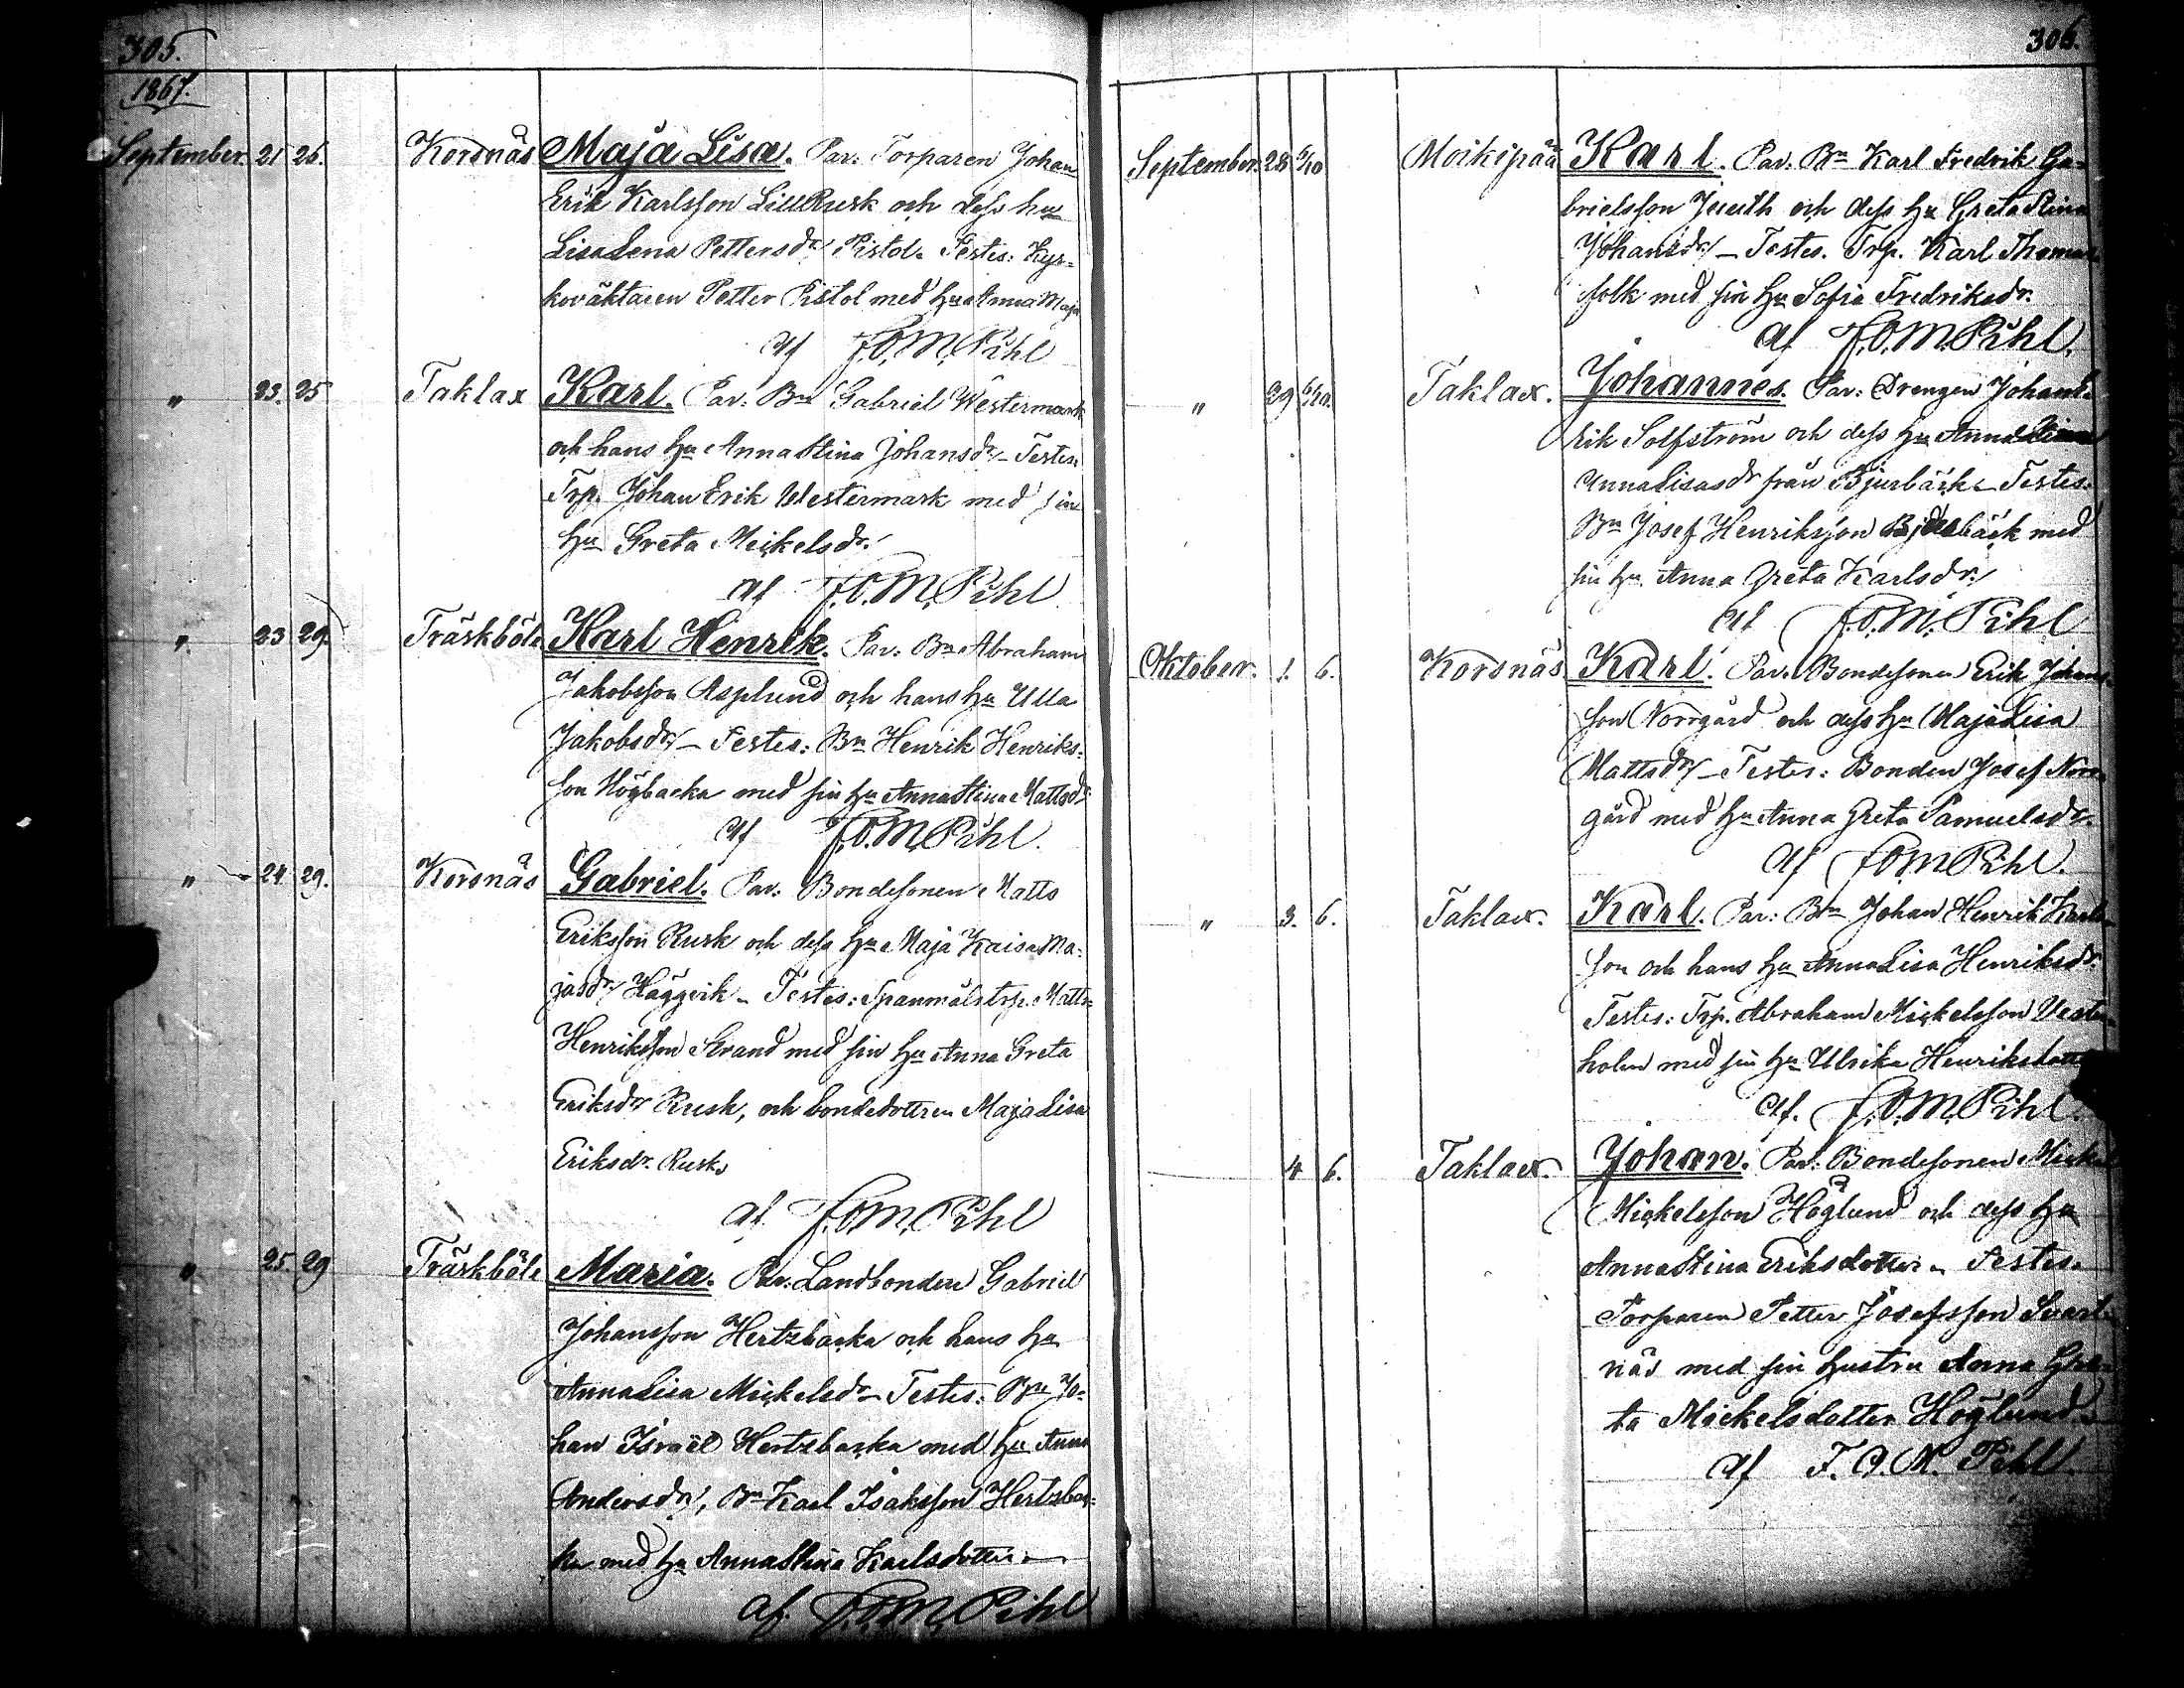 305.
1867.
September. 21 26. Korsnäs Maja Lisa. Par: Torparen Johan
Erik Karlsson LillRusk och dess hu
Lisa Lena Pettersdr Pistol. Testes: Kyr-
koväktaren Petter Pistol med hu Anna Maja
af F.O.M. Pihl
" 23. 25 Taklax Karl. Par: Bn Gabriel Westermark
och hans hu Anna Stina Johansdr - Testes:
Trp. Johan Erik Westermark med sin
hu Greta Mickelsdr.
af F.O.M. Pihl
" 23 29. Träskböle Karl Henrik. Par: Bn Abraham
Jakobsson Asplund och hans hu Ulla
Jakobsdr - Testes: Bn Henrik Henriks-
son Högbacka med sin hu Anna Stina Mattsdr
af F.O.M. Pihl.
" 24. 29. Korsnäs Gabriel. Par: Bondesonen Matts
Eriksson Rusk och dess hu Maja Kaisa Ma-
jasdr Häggvik - Testes: Spanmålstrp. Matts
Henriksson Strand med sin hu Anna Greta
Eriksdr Rusk, och bondedottren Maja Lisa
Eriksdr. Rusk
af F.O.M. Pihl
" 25 29 Träskböle Maria. Par: Landbonden Gabriel
Johansson Hertzbacka och hans hu
Anna Lisa Mickelsdr - Testes: Bn Jo-
han Israël Hertzbacka med hu Anna
Andersdr, Bn Karl Isaksson Hertzbac-
ka med hu Anna Stina Karlsdotter.
af F.O.M. Pihl
306.
September. 28. 6/10 Moikipää Karl. Par. Bn Karl Fredrik Ga-
brielsson och dess hu Greta Stina
Johansdr - Testes. Trp. Karl Thomas
folk med sin hu Sofia Fredriksdr.
af F.O.M. Pihl.
" 29 6/10. Taklax. Johannes. Par: Drengen Johan
Erik Solfström och dess hu Anna
Anna Lisasdr från Bjurbäck - Testes.
Bn Josef Henriksson Bjurbäck med
sin hu Anna Greta Karlsdr.
af F.O.M. Pihl
Oktober. 1. 6. Korsnäs Karl. Par. Bondesonen Erik Johans-
son Norrgård och dess hu Maja Lisa
Mattsdr - Testes: Bonden Josef Norr-
gård med hu Anna Greta Samuelsdr.
af F.O.M. Pihl.
" 3. 6. Taklax. Karl. Par: Bn Johan Henrik Karls-
son och hans hu Anna Lisa Henriksdr.
Testes: Trp. Abraham Mickelsson Vester-
holm med sin hu Ulrika Henriksdotter
af. F.O.M. Pihl.
4 6. Taklax. Johan. Par: Bondesonen Mickel
Mickelsson Höglund och dess hu
Anna Stina Eriksdotter - Testes.
Torparen Petter Josefsson Svart-
näs med sin hustru Anna Gre-
ta Mickelsdotter Höglund.
af F.O.M. Pihl.